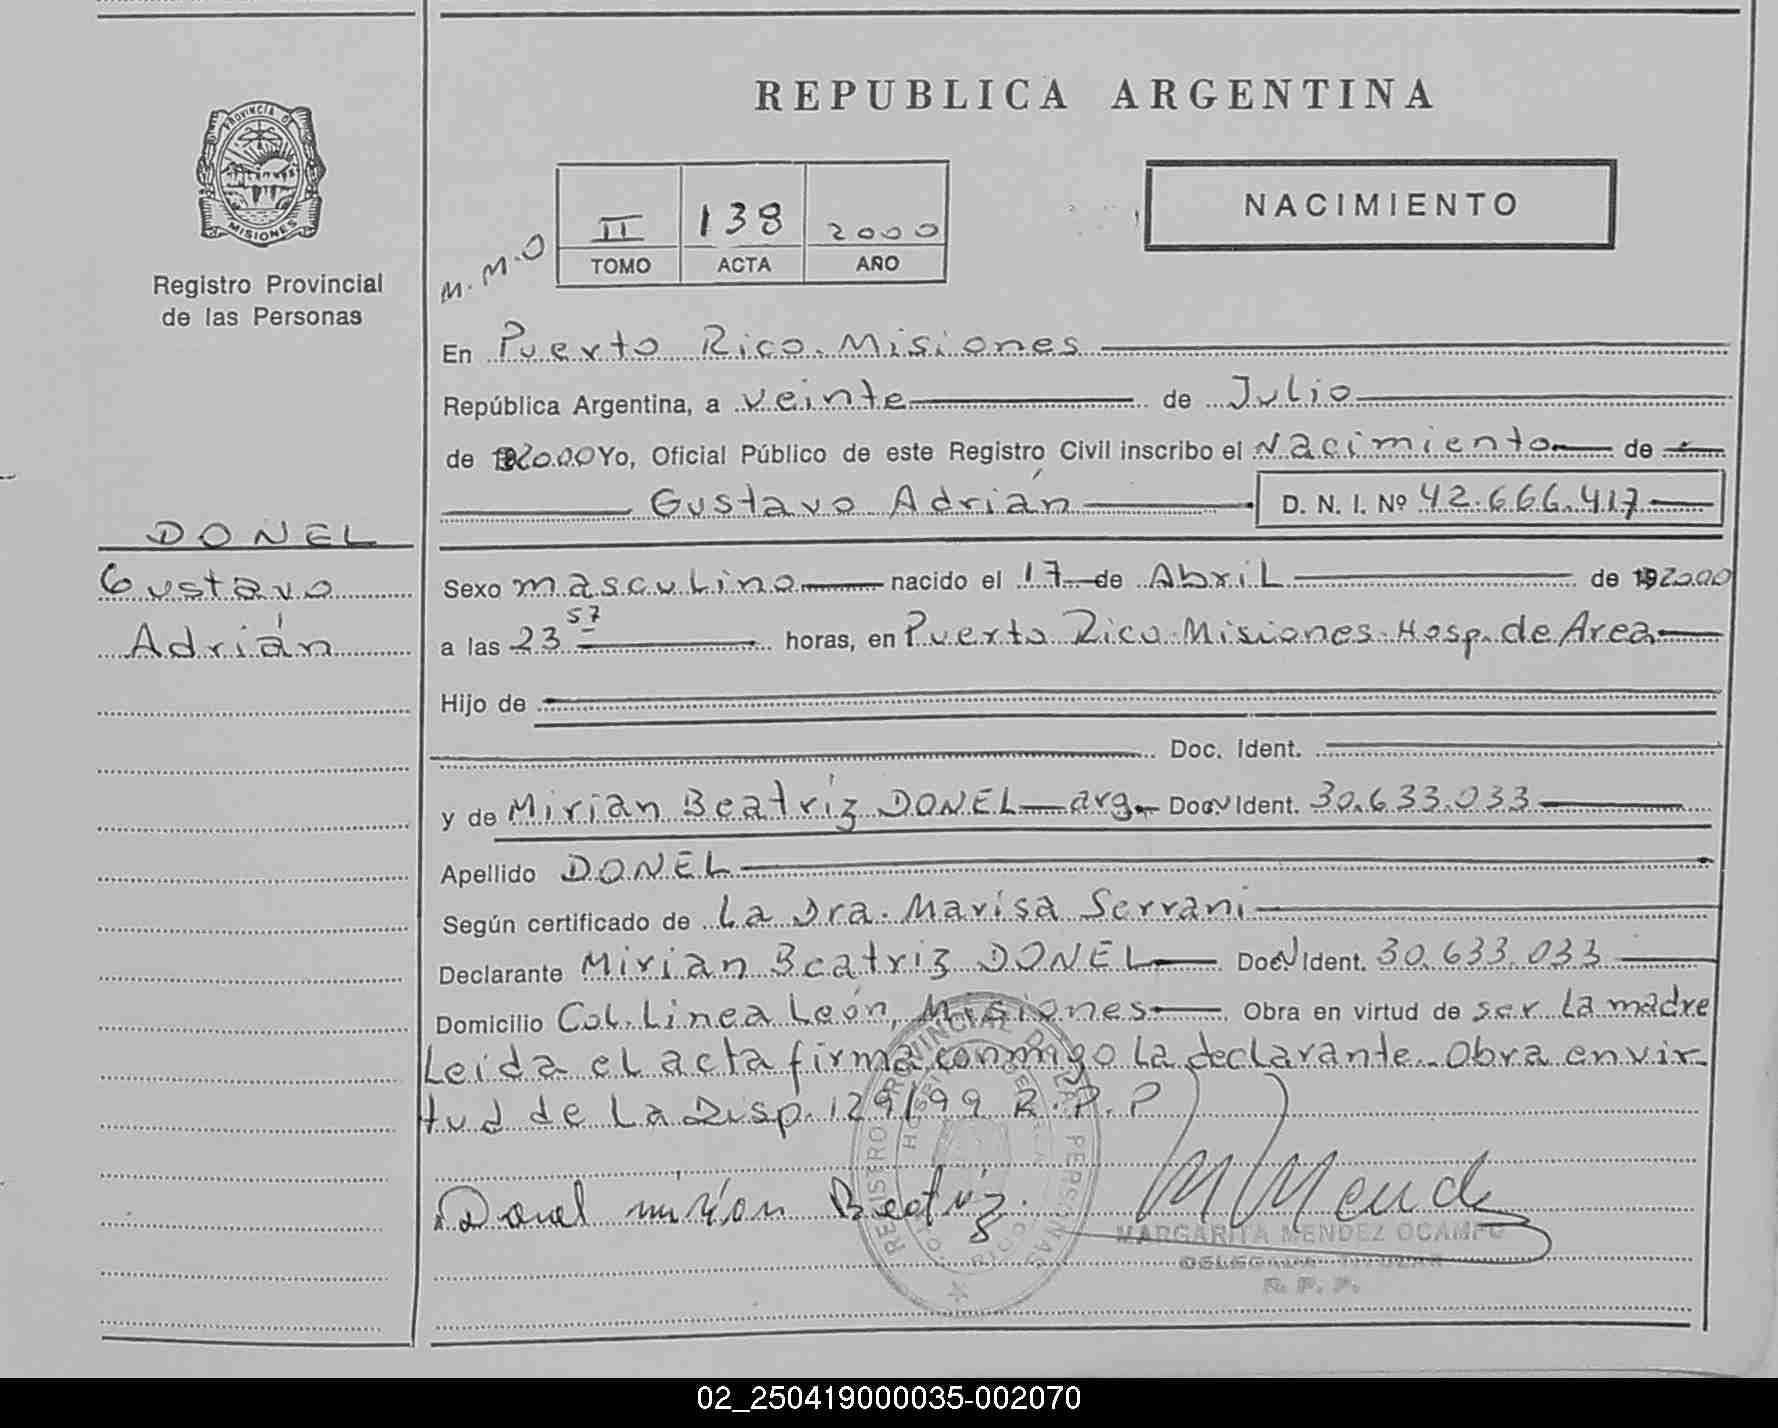 REPUBLICA ARGENTINA
PROVINCIA D
MISIONES
Registro Provincial
de las Personas
M.M.O
II 138 2000
TOMO ACTA AÑO
NACIMIENTO
En Puerto Rico. Misiones
República Argentina, a veinte de Julio
de 2000 Yo, Oficial Público de este Registro Civil inscribo el Nacimiento de
Gustavo Adrián D. N. I. Nº 42.666.417
DONEL
Gustavo
Adrián
Sexo masculino nacido el 17 de Abril de 2000
a las 23 57 horas, en Puerto Rico. Misiones. Hosp. de Area
Hijo de
Doc. Ident.
y de Mirian Beatríz DONEL arg. Doc. Ident. 30.633.033
Apellido DONEL
Según certificado de La Dra. Marisa Serrani
Declarante Mirian Beatriz DONEL Doc. Ident. 30.633.033
Domicilio Col. Linea León, Misiones Obra en virtud de ser la madre
Leída el acta firma conmigo la declarante. Obra en vir
tud de La Disp. 129/99 R.P.P
REGISTRO PROVINCIAL DE LAS PERSONAS
Donel mirian Beatriz. M Mendez
MARGARITA MENDEZ OCAMPO
DELEGADA TITULAR
R. P. P.
02_250419000035-002070